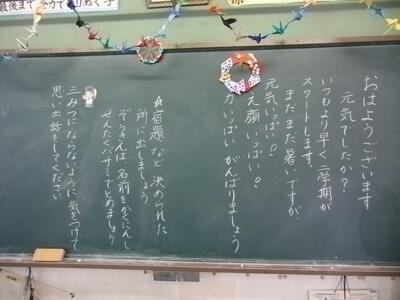 おはようございます
元気でしたか?
いつもより早く二学期が
スタートします。
まだまだ暑いですが
元気いっぱい!
え顔いっぱい!
力いっぱい がんばりましょう
☆宿題など、決められた
所に出しましょう。
ぞうきんは、名前をかくにんし
せんたくバサミでとめましょう
三みつにならないように気をつけて、
思い出話をしてください